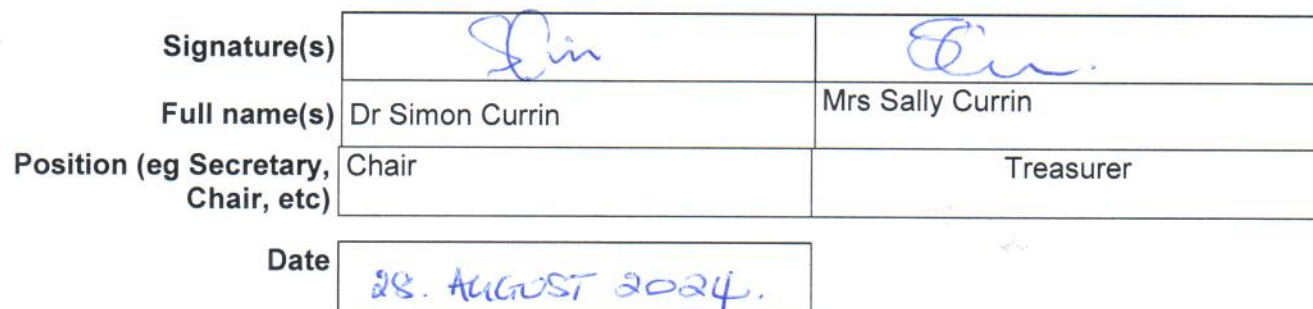 Signature(s)
Full name(s) Dr Simon Currin Mrs Sally Currin
Position (eg Secretary, Chair Treasurer
Chair, etc)
Date 28. AUGUST 2024.